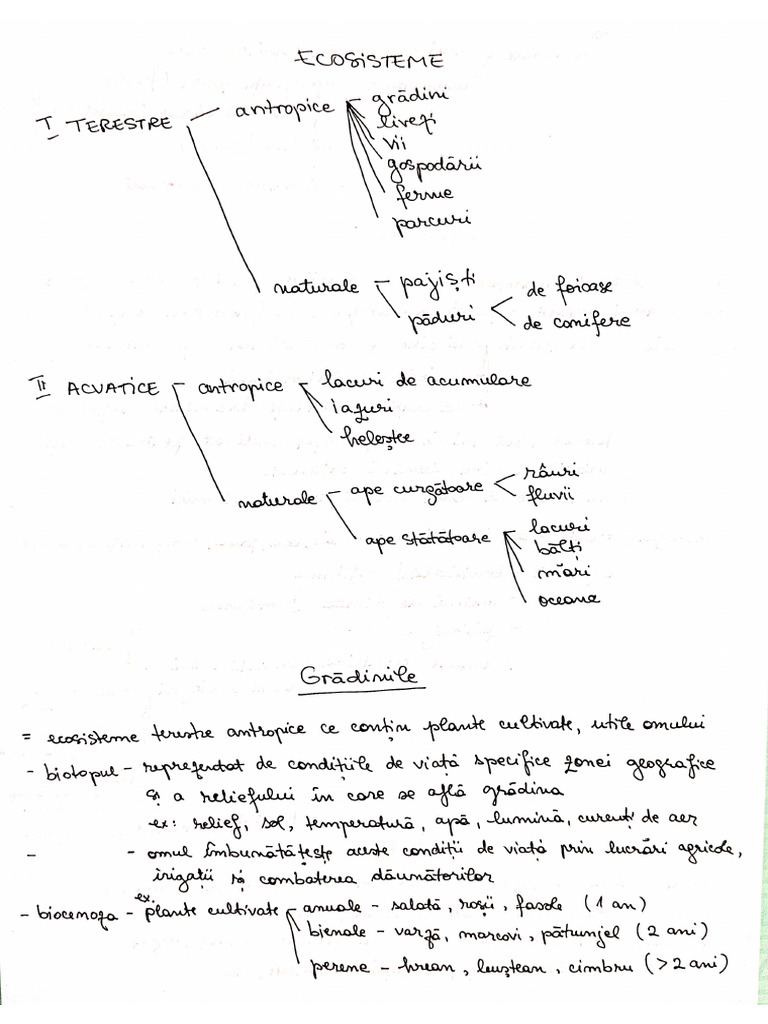 ECOSISTEME
I TERESTRE antropice grădini
livezi
vii
gospodării
ferme
parcuri
naturale pajiști
păduri de foioase
de conifere
II ACVATICE antropice lacuri de acumulare
iazuri
heleștee
naturale ape curgătoare râuri
fluvii
ape stătătoare lacuri
bălți
mări
oceane
Grădinile
= ecosisteme terestre antropice ce conțin plante cultivate, utile omului
- biotopul - reprezentat de condițiile de viață specifice zonei geografice
și a reliefului în care se află grădina
ex: relief, sol, temperatură, apă, lumină, curenți de aer
- - omul îmbunătățește aceste condiții de viață prin lucrări agricole,
irigații și combaterea dăunătorilor
ex.
- biocenoza - plante cultivate anuale - salată, roșii, fasole (1 an)
bienale - varză, morcovi, pătrunjel (2 ani)
perene - hrean, leuștean, cimbru (> 2 ani)